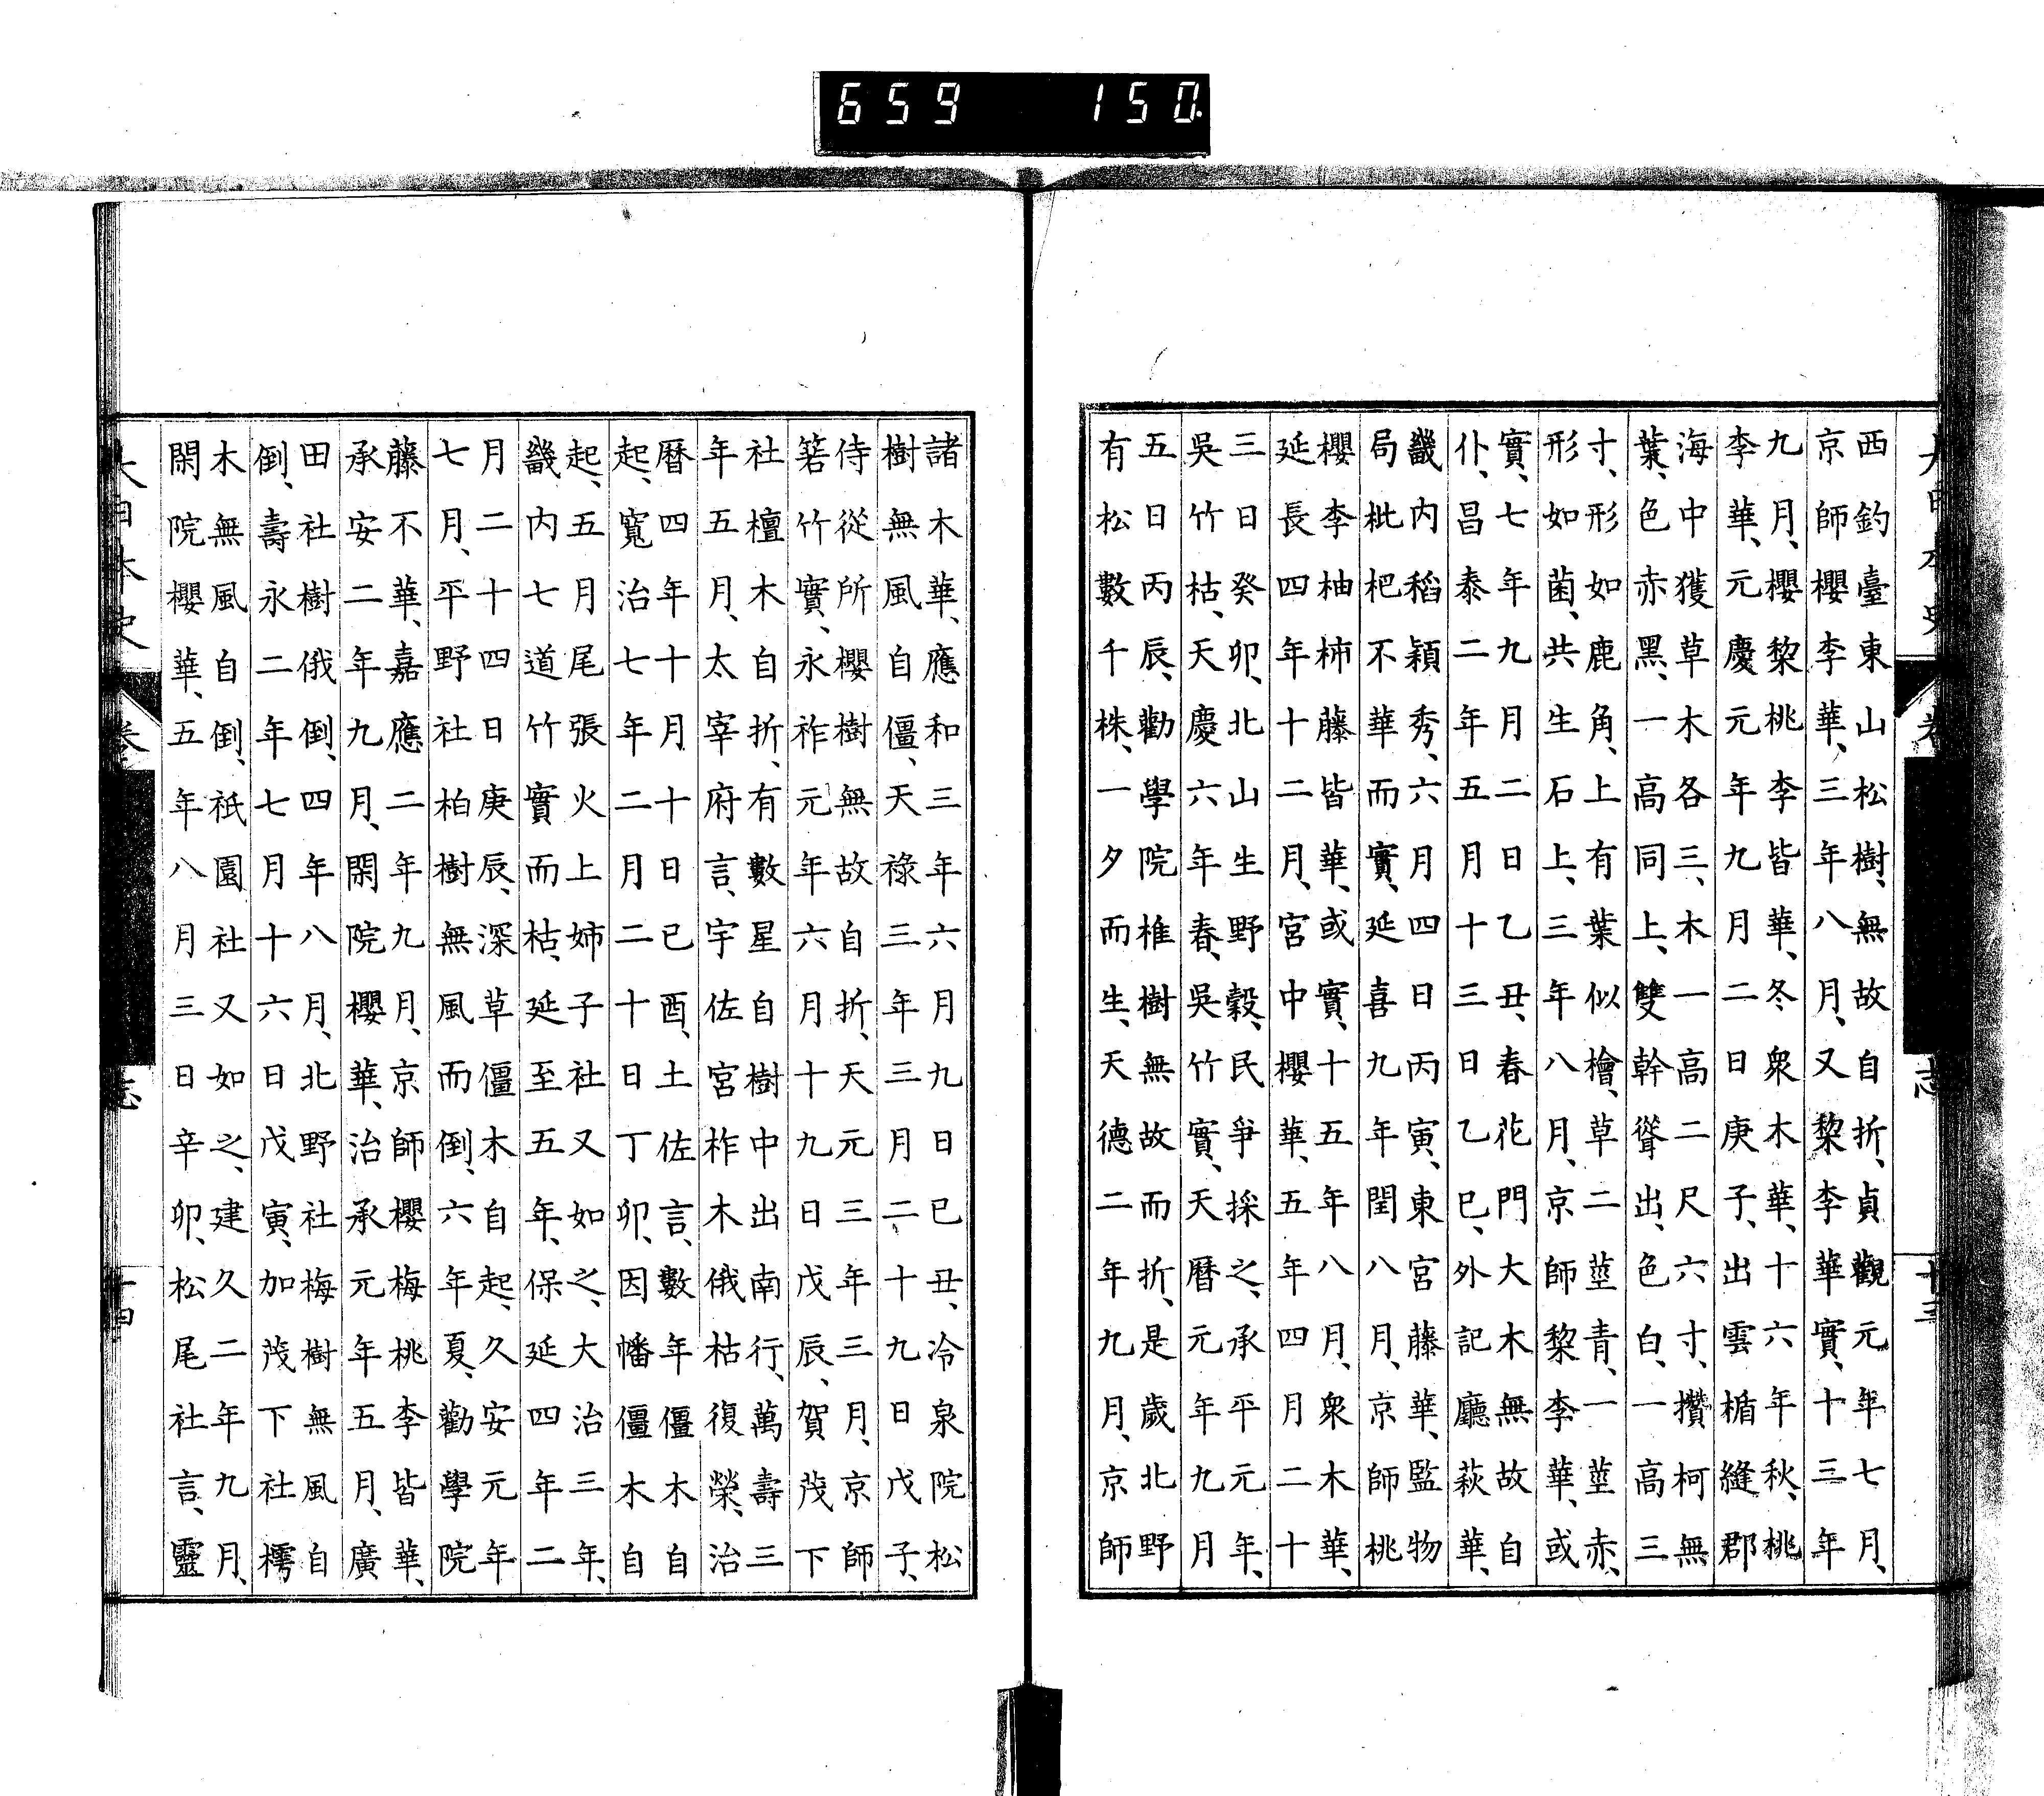 大日本史
卷
志
十三
西釣臺東山松樹、無故自折、貞觀元年七月、
京師櫻李華、三年八月、又黎李華實、十三年
九月、櫻黎桃李皆華、冬衆木華、十六年秋、桃
李華、元慶元年九月二日庚子、出雲楯縫郡
海中獲草木各三、木一高二尺六寸、攢柯無
葉、色赤黑、一高同上、雙幹聳出、色白、一高三
寸、形如鹿角、上有葉似檜、草二莖青、一莖赤、
形如菌、共生石上、三年八月、京師黎李華、或
實、七年九月二日乙丑、春花門大木無故自
仆、昌泰二年五月十三日乙巳、外記廳萩華、
畿內稻穎秀、六月四日丙寅、東宮藤華、監物
局枇杷不華而實、延喜九年閏八月、京師桃
櫻李柚柿藤皆華、或實、十五年八月、衆木華、
延長四年十二月、宮中櫻華、五年四月二十
三日癸卯、北山生野穀、民爭採之、承平元年、
吳竹枯、天慶六年春、吳竹實、天曆元年九月
五日丙辰、勸學院椎樹無故而折、是歲北野
有松數千株、一夕而生、天德二年九月、京師
諸木華、應和三年六月九日己丑、冷泉院松
樹無風自僵、天祿三年三月二十九日戊子、
侍從所櫻樹無故自折、天元三年三月、京師
箬竹實、永祚元年六月十九日戊辰、賀茂下
社檀木自折、有數星自樹中出南行、萬壽三
年五月、太宰府言、宇佐宮柞木俄枯復榮、治
曆四年十月十日己酉、土佐言、數年僵木自
起、寬治七年二月二十日丁卯、因幡僵木自
起、五月尾張火上姉子社又如之、大治三年、
畿內七道竹實而枯、延至五年、保延四年二
月二十四日庚辰、深草僵木自起、久安元年
七月、平野社柏樹無風而倒、六年夏、勸學院
藤不華、嘉應二年九月、京師櫻梅桃李皆華、
承安二年九月、閑院櫻華、治承元年五月、廣
田社樹俄倒、四年八月、北野社梅樹無風自
倒、壽永二年七月十六日戊寅、加茂下社樗
木無風自倒、祇園社又如之、建久二年九月、
閑院櫻華、五年八月三日辛卯、松尾社言、靈
大日本史
卷
志
十四
659 150